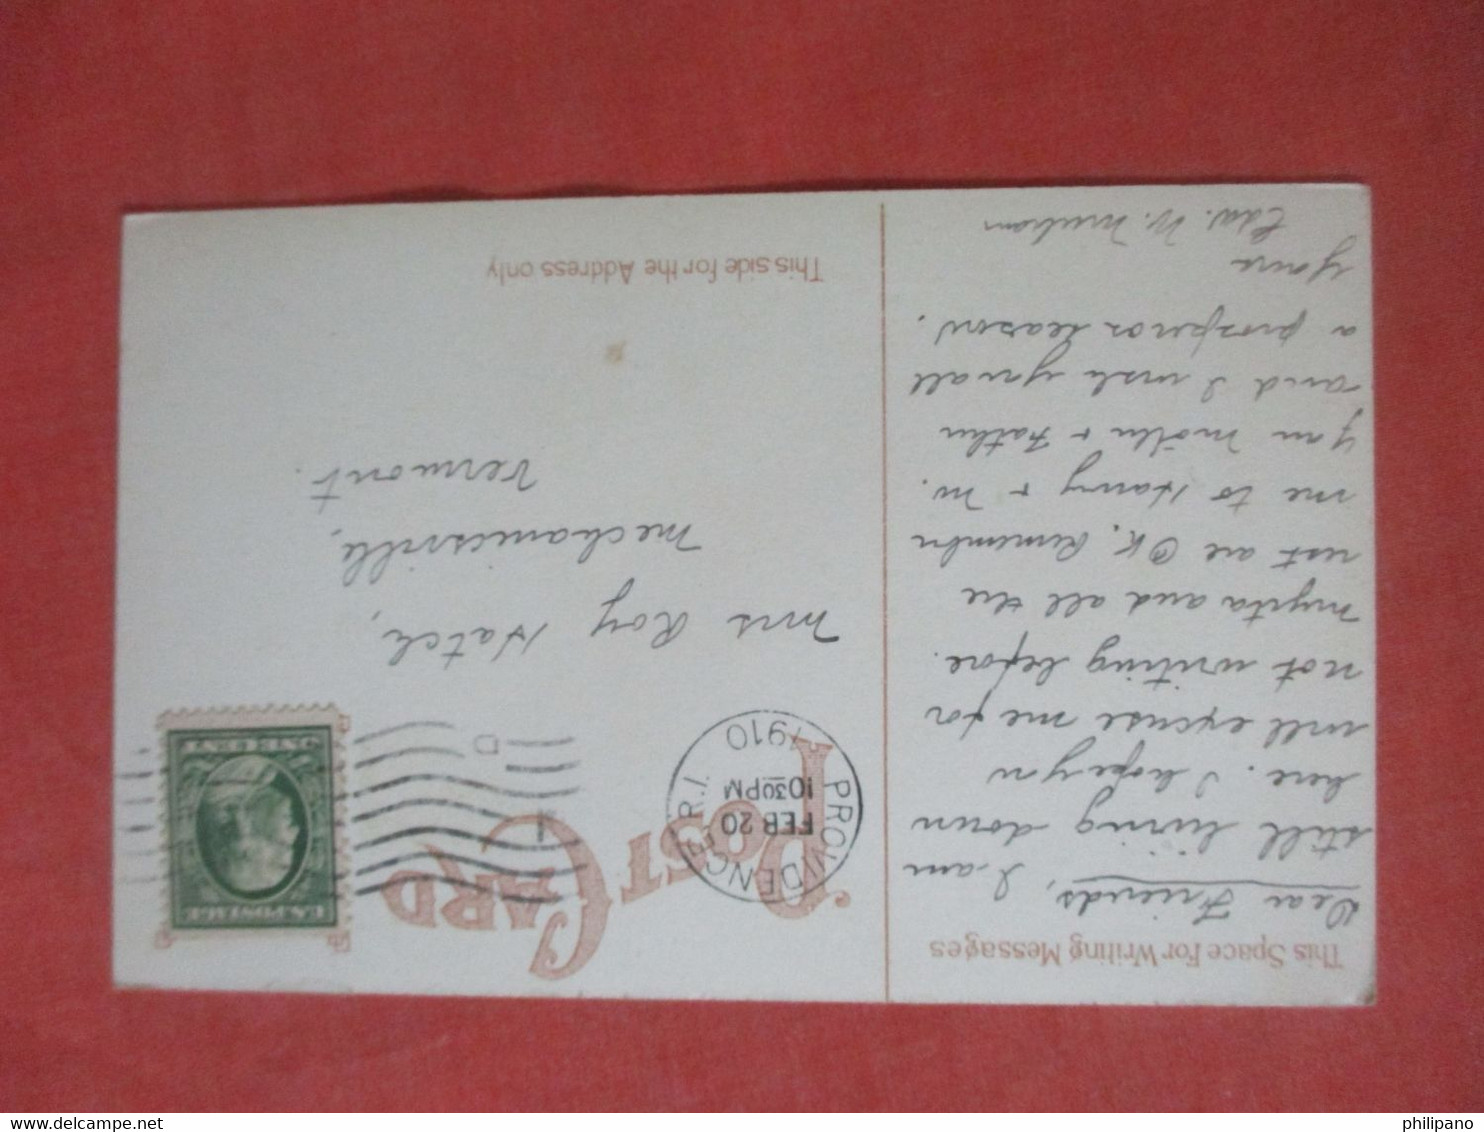 POST CARD
This Space For Writing Messages
This side for the Address only
PROVIDENCE, R.I.
FEB 20
10 30 PM
1910
D
1
U.S. POSTAGE
ONE CENT
Dear Friends, I am
still living down
here. I hope you
will excuse me for
not writing before.
and all the
rest are OK. Remember
me to Harry & M.
you Mother & Father
and I wish you all
a prosperos season.
yours
Edw. W.
Mrs Roy Hatch,
Mechanicsville,
Vermont.
philipano